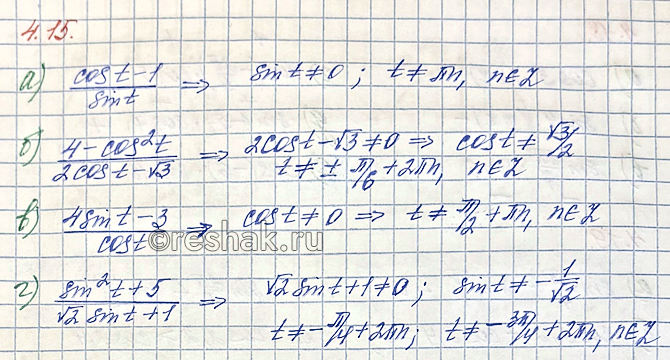 4.15.
а) (cos t - 1)/(sin t) ⇒ sin t ≠ 0 ; t ≠ πn, n∈Z
б) (4 - cos²t)/(2cos t - √3) ⇒ 2cos t - √3 ≠ 0 ⇒ cos t ≠ √3/2
t ≠ ± π/6 + 2πn, n∈Z
в) (4 sin t - 3)/(cos t) ⇒ cos t ≠ 0 ⇒ t ≠ π/2 + πn, n∈Z
©reshak.ru
г) (sin²t + 5)/(√2 sin t + 1) ⇒ √2 sin t + 1 ≠ 0 ; sin t ≠ - 1/√2
t ≠ - π/4 + 2πn ; t ≠ - 3π/4 + 2πn, n∈Z